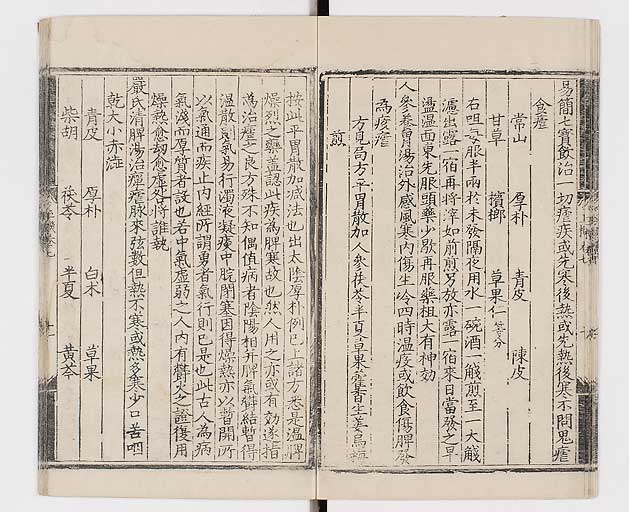 易簡七寶飲治一切瘧疾或先寒後熱或先熱後寒不問鬼瘧
食瘧
常山 厚朴 青皮 陳皮
甘草 檳榔 草果仁 等分
右㕮咀每服半兩於未發隔夜用水一碗酒一盞煎至一大盞
濾出露一宿再將滓如前煎另放亦露一宿來日當發之早
盪溫面東先服頭藥少歇再服藥粗大有神効
人參養胃湯治外感風寒內傷生冷四時溫疫或飲食傷脾發
為痎瘧
方見局方平胃散加人參茯苓半夏草果藿香生姜烏梅
煎
按此平胃散加減法也出太陰厚朴例已上諸方悉是溫脾
燥烈之藥蓋認此疾為脾寒故也然人用之亦或有効遂指
為治瘧之良方殊不知偶值病者陰陽相并脾氣鬱結暫得
溫散則氣易行濁液凝痰中脘閉塞因得燥熱亦以暫開所
以氣通而疾止內經所謂勇者氣行則已是也此古人為病
氣淺而厚質者設也若中氣虛弱之人內有鬱火之證復用
燥熱愈劫愈虛咎將誰執
嚴氏清脾湯治癉瘧脉來弦數但熱不寒或熱多寒少口苦咽
乾大小赤澁
青皮 厚朴 白朮 草果
柴胡 茯苓 半夏 黃芩